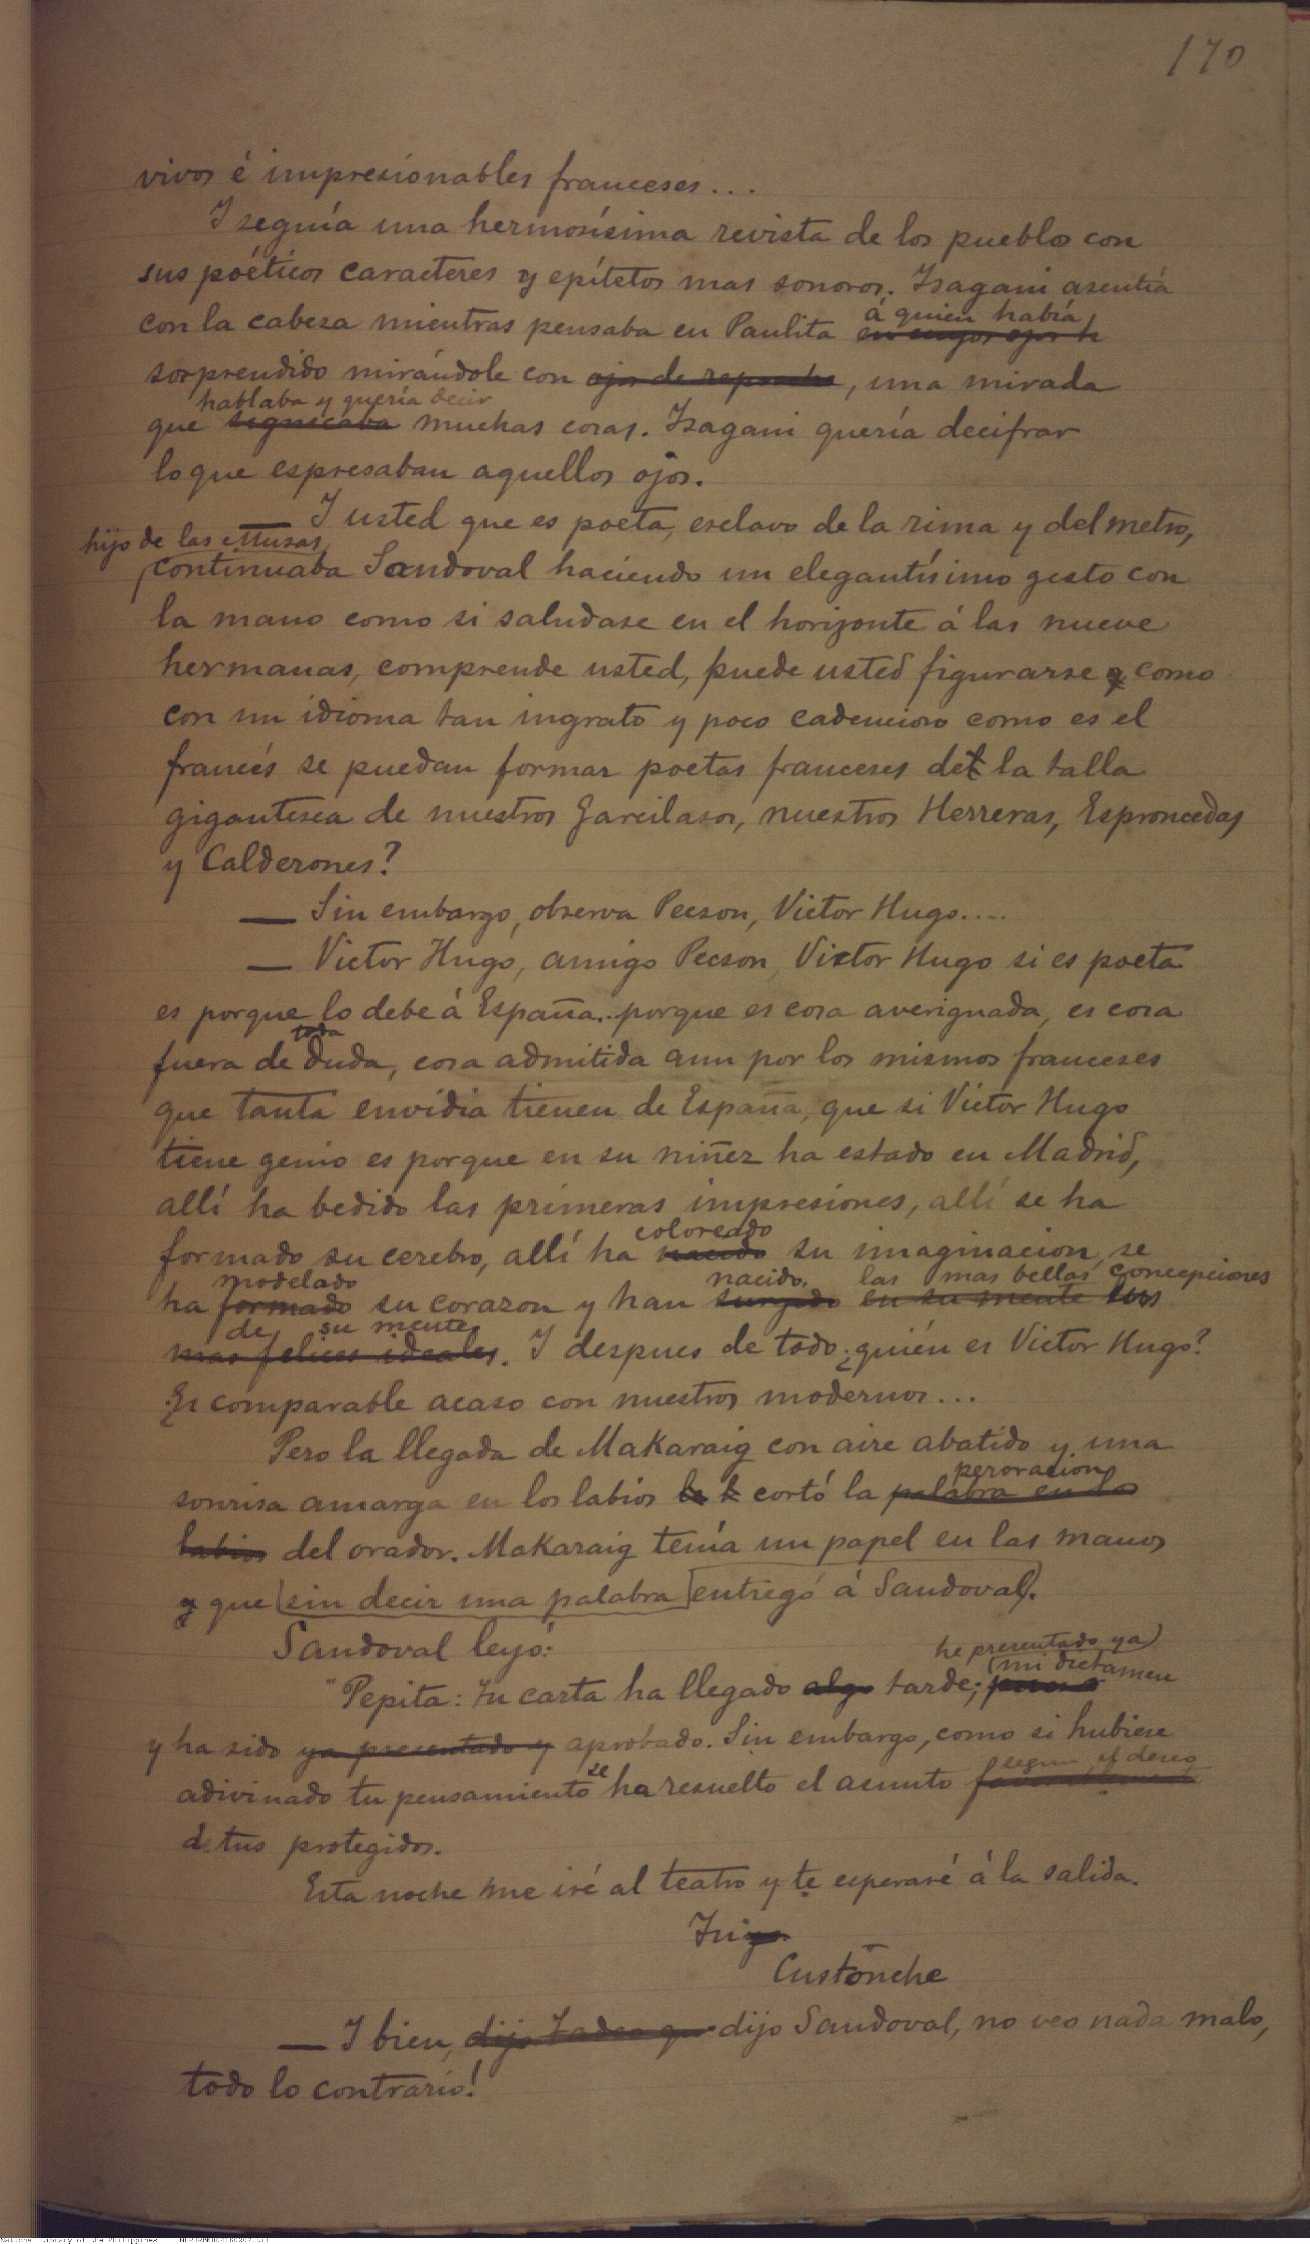 170
vivos é impresionables franceses...
I seguía una hermosísima revista de los pueblos con
sus poéticos caracteres y epítetos mas sonoros. Isagani asentía
á quien había
con la cabeza mientras pensaba en Paulita en cuyos ojos h
sorprendido mirándole con ojos de reproche, una mirada
hablaba y quería decir
que significaba muchas cosas. Isagani quería decifrar
lo que espresaban aquellos ojos.
— I usted que es poeta, esclavo de la rima y del metro,
hijo de las Musas,
continuaba Sandoval haciendo un elegantísimo gesto con
la mano como si saludase en el horizonte á las nueve
hermanas, comprende usted, puede usted figurarse q como
con un idioma tan ingrato y poco cadencioso como es el
francés se puedan formar poetas franceses de la talla
gigantesca de nuestros Garcilasos, nuestros Herreras, Esproncedas
y Calderones?
— Sin embargo, observa Pecson, Victor Hugo....
— Victor Hugo, amigo Pecson, Victor Hugo si es poeta
es porque lo debe á España.. porque es cosa averiguada, es cosa
toda
fuera de duda, cosa admitida aun por los mismos franceses
que tanta envidia tienen de España, que si Victor Hugo
tiene genio es porque en su niñez ha estado en Madrid,
allí ha bedido las primeras impresiones, allí se ha
coloreado
formado su cerebro, allí ha nacido su imaginacion, se
modelado nacido. las mas bellas concepciones
ha formado su corazon y han surgido en su mente sus
de su mente
mas felices ideales. I despues de todo ¿quién es Victor Hugo?
¿Es comparable acaso con nuestros modernos...
Pero la llegada de Makaraig con aire abatido y una
peroracion
sonrisa amarga en los labios le k cortó la palabra en los
labios del orador. Makaraig tenía un papel en las manos
y que sin decir una palabra entregó á Sandoval.
Sandoval leyó:
he presentado ya
mi dictamen
"Pepita: Tu carta ha llegado algo tarde;
y ha sido ya presentado y aprobado. Sin embargo, como si hubiese
segun el deseo
adivinado tu pensamiento se ha resuelto el asunto
de tus protegidos.
Esta noche me iré al teatro y te esperaré á la salida.
Tuyo
Custonche
— I bien, dijo Tadeo que dijo Sandoval, no veo nada malo,
todo lo contrario!